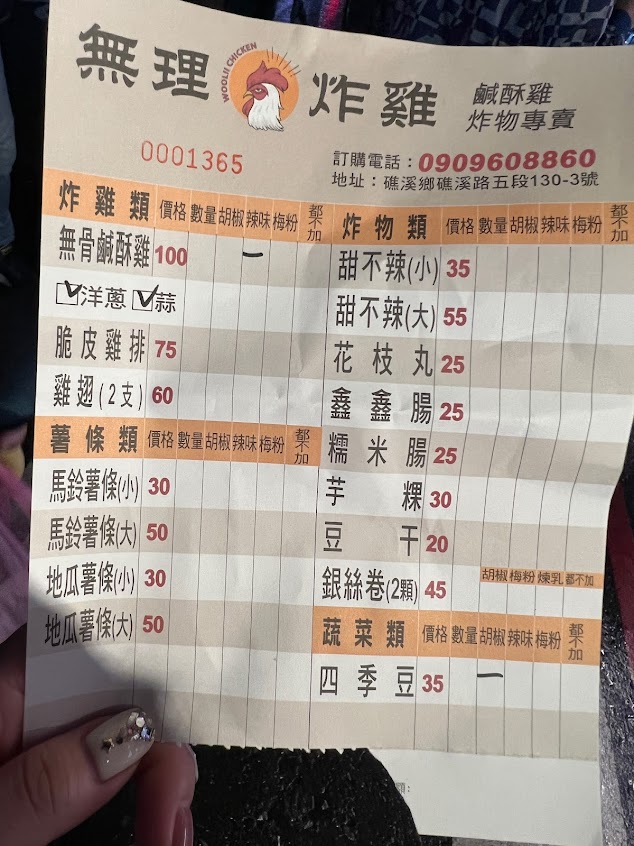 無理炸雞
WOOLII CHICKEN
鹹酥雞
炸物專賣
0001365
訂購電話：0909608860
地址：礁溪鄉礁溪路五段130-3號
炸雞類 價格 數量 胡椒 辣味 梅粉 都不加
無骨鹹酥雞 100 一
洋蔥 蒜
脆皮雞排 75
雞翅(2支) 60
薯條類 價格 數量 胡椒 辣味 梅粉 都不加
馬鈴薯條(小) 30
馬鈴薯條(大) 50
地瓜薯條(小) 30
地瓜薯條(大) 50
炸物類 價格 數量 胡椒 辣味 梅粉 都不加
甜不辣(小) 35
甜不辣(大) 55
花枝丸 25
鑫鑫腸 25
糯米腸 25
芋粿 30
豆干 20
銀絲卷(2顆) 45 胡椒 梅粉 煉乳 都不加
蔬菜類 價格 數量 胡椒 辣味 梅粉 都不加
四季豆 35 一